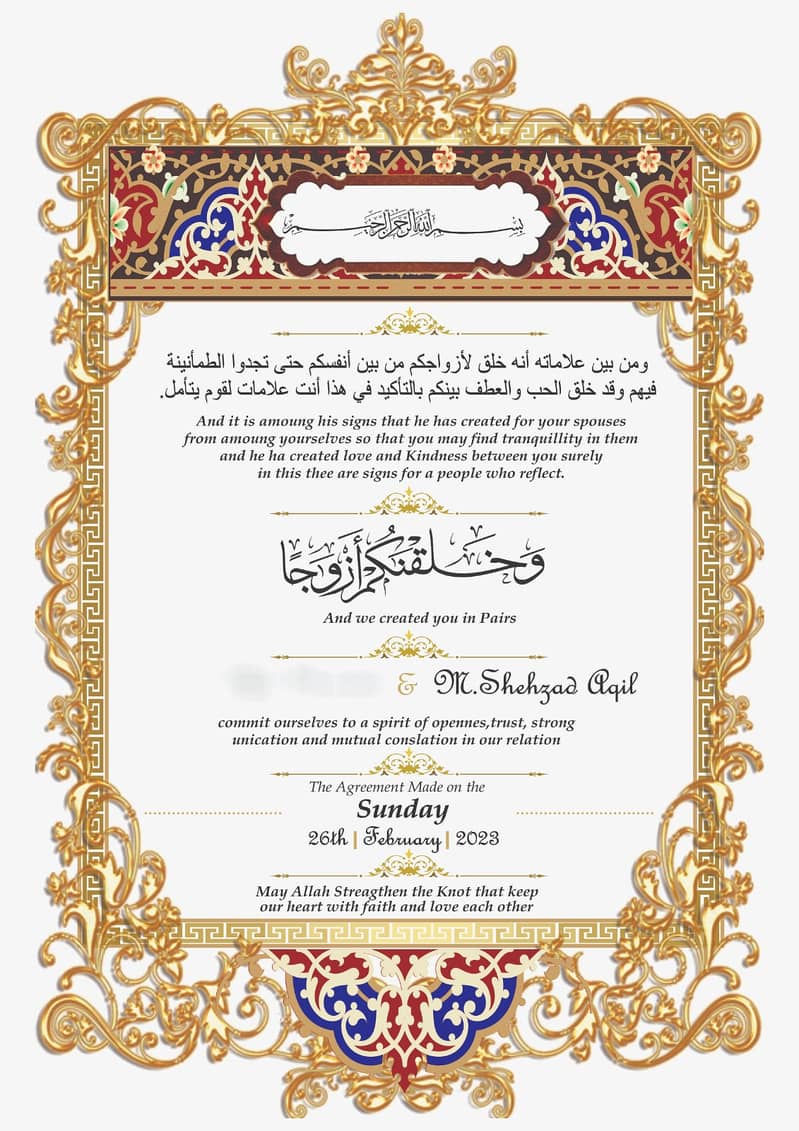 بسم الله الرحمن الرحيم
ومن بين علاماته أنه خلق لأزواجكم من بين أنفسكم حتى تجدوا الطمأنينة
فيهم وقد خلق الحب والعطف بينكم بالتأكيد في هذا أنت علامات لقوم يتأمل.
And it is amoung his signs that he has created for your spouses
from amoung yourselves so that you may find tranquillity in them
and he ha created love and Kindness between you surely
in this thee are signs for a people who reflect.
وَخَلَقْنَٰكُمْ أَزْوَٰجًا
And we created you in Pairs
& M.Shehzad Aqil
commit ourselves to a spirit of opennes,trust, strong
unication and mutual conslation in our relation
The Agreement Made on the
Sunday
26th | February | 2023
May Allah Streagthen the Knot that keep
our heart with faith and love each other